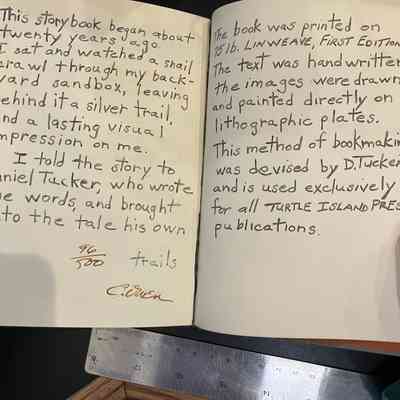 This story book began about
twenty years ago.
I sat and watched a snail
crawl through my back-
yard sandbox, leaving
behind it a silver trail.
and a lasting visual
impression on me.
I told the story to
Daniel Tucker, who wrote
the words, and brought
to the tale his own
trails
96/500
The book was printed on
75 lb. LINWEAVE, FIRST EDITION
The text was handwritten
the images were drawn
and painted directly on
lithographic plates.
This method of bookmaking
was devised by D. Tucker
and is used exclusively
for all TURTLE ISLAND PRESS
publications.